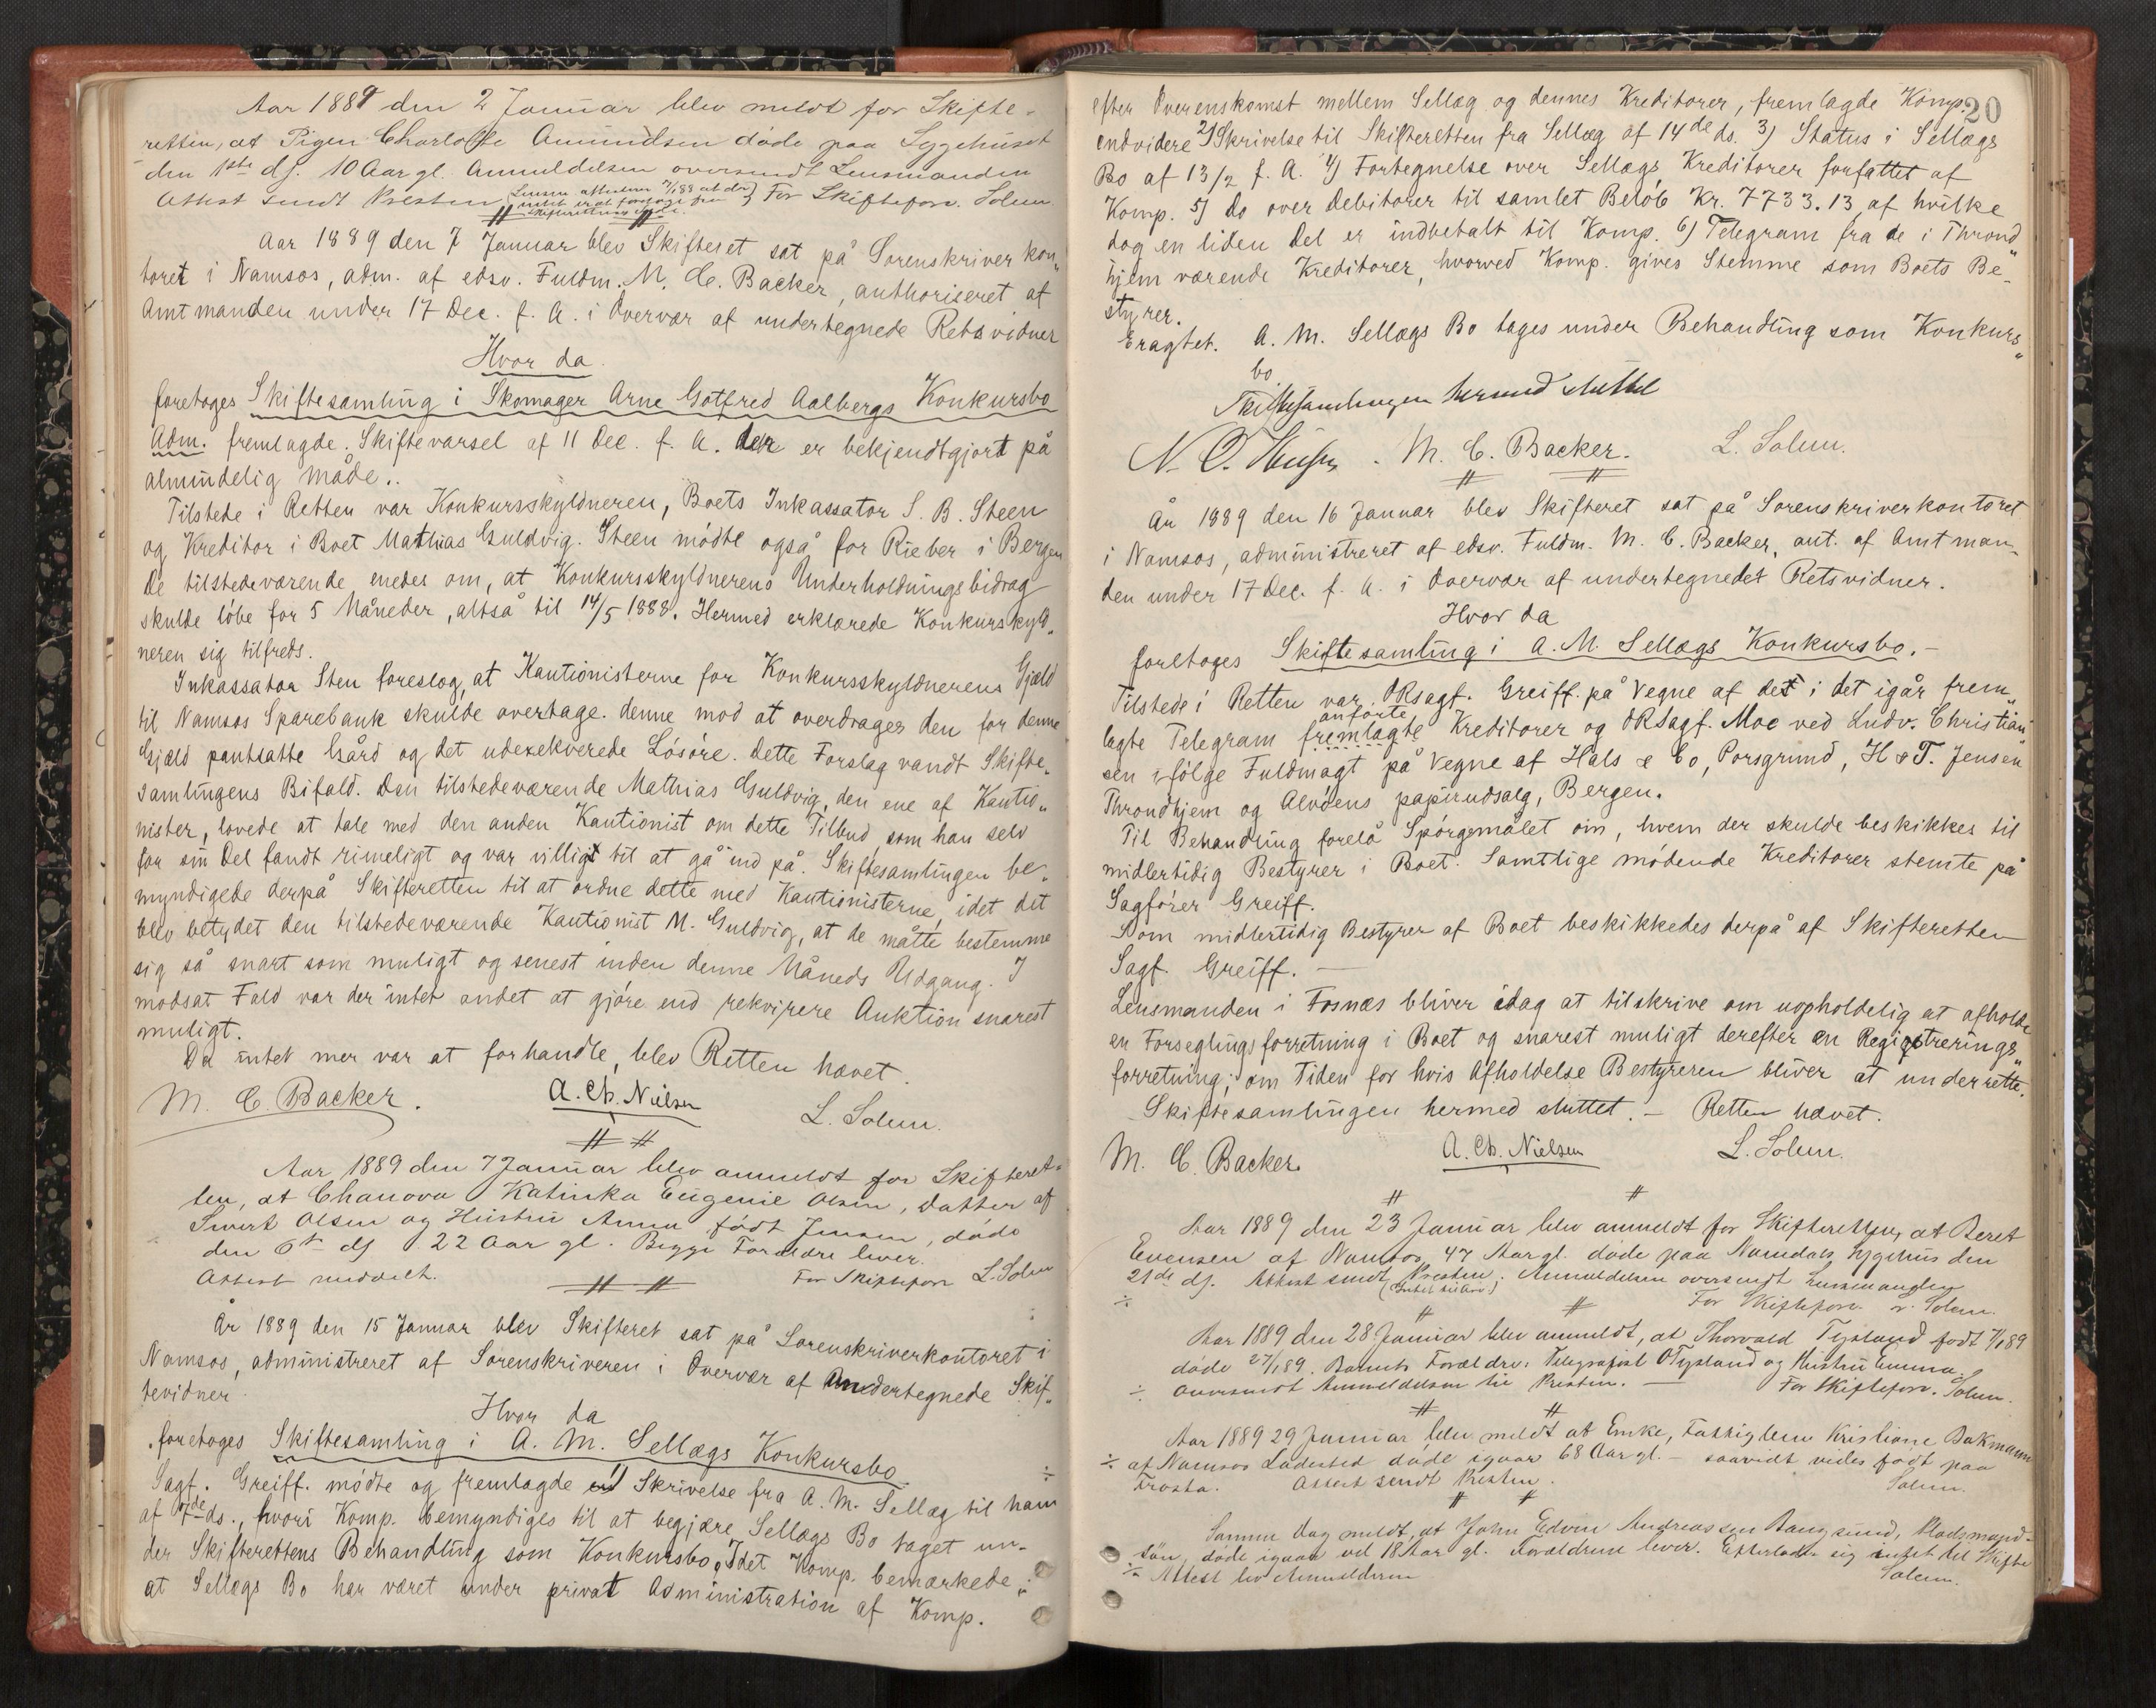 Aar 1889 den 2 Januar blev meldt for Skifte-
retten, at Pigen Charlotte Amundsen døde paa Sygehuset
den 1ste ds. 10 Aar gl. Anmeldelsen oversendt Lensmanden
Attest sendt Presten For Skifteforv. Solem.
Aar 1889 den 7 Januar blev Skifteret sat på Sorenskriverkon„
toret i Namsos, adm. af edsv. Fuldm. M. C. Backer, authoriseret af
Amtmanden under 17 Dec. f. A. i Overvær af undertegnede Retsvidner
Hvor da
foretoges Skiftesamling i Skomager Arne Gotfred Aalbergs Konkursbo
Adm. fremlagde Skiftevarsel af 11 Dec. f. A. der er bekjendtgjort på
almindelig Måde..
Tilstede i Retten var Konkursskyldneren, Boets Inkassator S. B. Steen
og Kreditor i Boet Mathias Guldvig. Steen mødte også for Rieber i Bergen
De tilstedeværende enedes om, at Konkursskyldnerens Underholdningsbidrag
skulde løbe for 5 Måneder, altså til 14/5 1888. Hermed erklærede Konkursskyld„
neren sig tilfreds.
Inkassator Sten foreslog, at Kautionisterne for Konkursskyldnerens Gjæld
til Namsos Sparebank skulde overtage denne mod at overdrages den for denne
Gjæld pantsatte Gård og det udexekverede Løsøre. Dette Forslag vandt Skifte„
samlingens Bifald. Den tilstedeværende Mathias Guldvig, den ene af Kautio„
nister, lovede at tale med den anden Kautionist om dette Tilbud, som han selv
for sin Del fandt rimeligt og var villigt til at gå ind på. Skiftesamlingen be„
myndigede derpå Skifteretten til at ordne dette med Kautionisterne, idet det
blev betydet den tilstedeværende Kautionist M. Guldvig, at de måtte bestemme
sig så snart som muligt og senest inden denne Måneds Udgang. I
modsat Fald var der intet andet at gjøre end rekvirere Auktion snarest
muligt.
Da intet mer var at forhandle, blev Retten hævet.
M. C. Backer. A. Ch. Nielsen L. Solem.
Aar 1889 den 7 Januar blev anmeldt for Skifteret-
ten, at Chanova Katinka Eugenie Olsen, datter af
Sivert Olsen og Hustru Anna født Jensen, døde
den 6te ds 22 Aar gl. Begge Forældre lever.
Attest meddelt. For Skifteforv L. Solem
År 1889 den 15 Januar blev Skifteret sat på Sorenskriverkontoret i
Namsos, administreret af Sorenskriveren i Overvær af Undertegnede Skif„
tevidner
Hvor da
foretoges Skiftesamling i A. M. Sellægs Konkursbo
Sagf. Greiff. mødte og fremlagde 1) Skrivelse fra A. M. Sellæg til ham
af 7de ds., hvori Komp. bemyndiges til at begjære Sellægs Bo taget un-
der Skifterettens Behandling som Konkursbo, Idet Komp. bemærkede
at Sellægs Bo har været under privat Administration af Komp.
20
efter Overenskomst mellem Sellæg og dennes Kreditorer, fremlagde Komp.
endvidere 2) Skrivelse til Skifteretten fra Sellæg af 14de ds. 3) Status i Sellægs
Bo af 13/2 f. A. 4) Fortegnelse over Sellægs Kreditorer forfattet af
Komp. 5) do over Debitorer til samlet Beløb Kr. 7733.13, af hvilke
dog en liden Del er indbetalt til Komp. 6) Telegram fra de i Thrond„
hjem værende Kreditorer, hvorved Komp. gives Stemme som Boets Be-
styrer.
Eragtet. A. M. Sellægs Bo tages under Behandling som Konkurs„
bo
Skiftesamlingen hermed sluttet
M. C. Backer. L. Solem.
År 1889 den 16 Januar blev Skifteret sat på Sorenskriverkontoret
i Namsos, administreret af edsv. Fuldm. M. C. Backer, aut. af Amtman„
den under 17 Dec. f. A. i Overvær af undertegnedet Retsvidner.
Hvor da
foretoges Skiftesamling i A. M. Sellægs Konkursbo.-
Tilstede i Retten var ORsagf. Greiff. på Vegne af det i det igår frem„
anførte
lagte Telegram fremlagte Kreditorer og ORSagf. Moe ved Ludv. Christian„
sen ifølge Fuldmagt på Vegne af Hals & Co, Porsgrund, H & T. Jensen
Throndhjem og Alvøens papirudsalg, Bergen.
Til Behandling forelå Spørgsmålet om, hvem der skulde beskikkes til
midlertidig Bestyrer i Boet. Samtlige mødende Kreditorer stemte på
Sagfører Greiff.
Som midlertidig Bestyrer af Boet beskikkedes derpå af Skifteretten
Sagf. Greiff. -
Lensmanden i Fosnæs bliver idag at tilskrive om uopholdelig at afholde
en Forseglingsforretning i Boet og snarest muligt derefter en Registrerings„
forretning; om Tiden for hvis Afholdelse Bestyreren bliver at underrette.
Skiftesamlingen hermed sluttet. - Retten hævet.
M. C. Backer. A. Ch. Nielsen L. Solem.
Aar 1889 den 23 Januar blev anmeldt for Skifteretten, at Beret
Evensen af Namsos, 47 Aar gl. døde paa Namdals Sygehus den
21de ds. Attest sendt Presten. Anmeldelsen oversendt Lensmanden
For Skifteforv. L. Solem.
Aar 1889 den 28 Januar blev anmeldt, at Thorvald Tysland født
døde 27/1 89. Barnets Forældre: Telegrafist O Tysland og Hustru Emma.
÷ oversendt Anmeldelsen til Presten. - For Skifteforv. Solem.
Aar 1889 29 Januar blev meldt at Enke, Fattiglem Kristiane Bakmann
÷ af Namsos Ladested døde igaar 68 Aar gl. - saavidt vides født paa
Frosta. Attest sendt Presten. Solem.
Samme Dag meldt, at John Edvin Andreassen Bangsund, Pladsmand-
søn, døde igaar vel 18 Aar gl. Forældrene lever. Efterlader sig intet til Skifte
÷ Attest lev Anmelderen Solem.